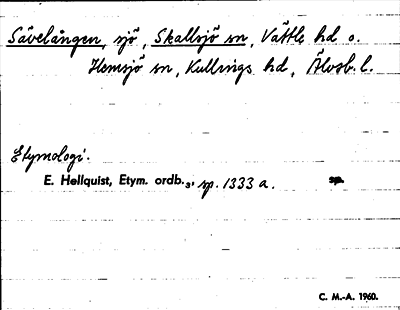 Sävelången, sjö, Skallsjö sn, Vättle hd o.
Hemsjö sn, Kullings hd, Älvsb. l.
Etymologi.
E. Hellquist, Etym. ordb.3, sp. 1333 a. sp.
C. M.-A. 1960.